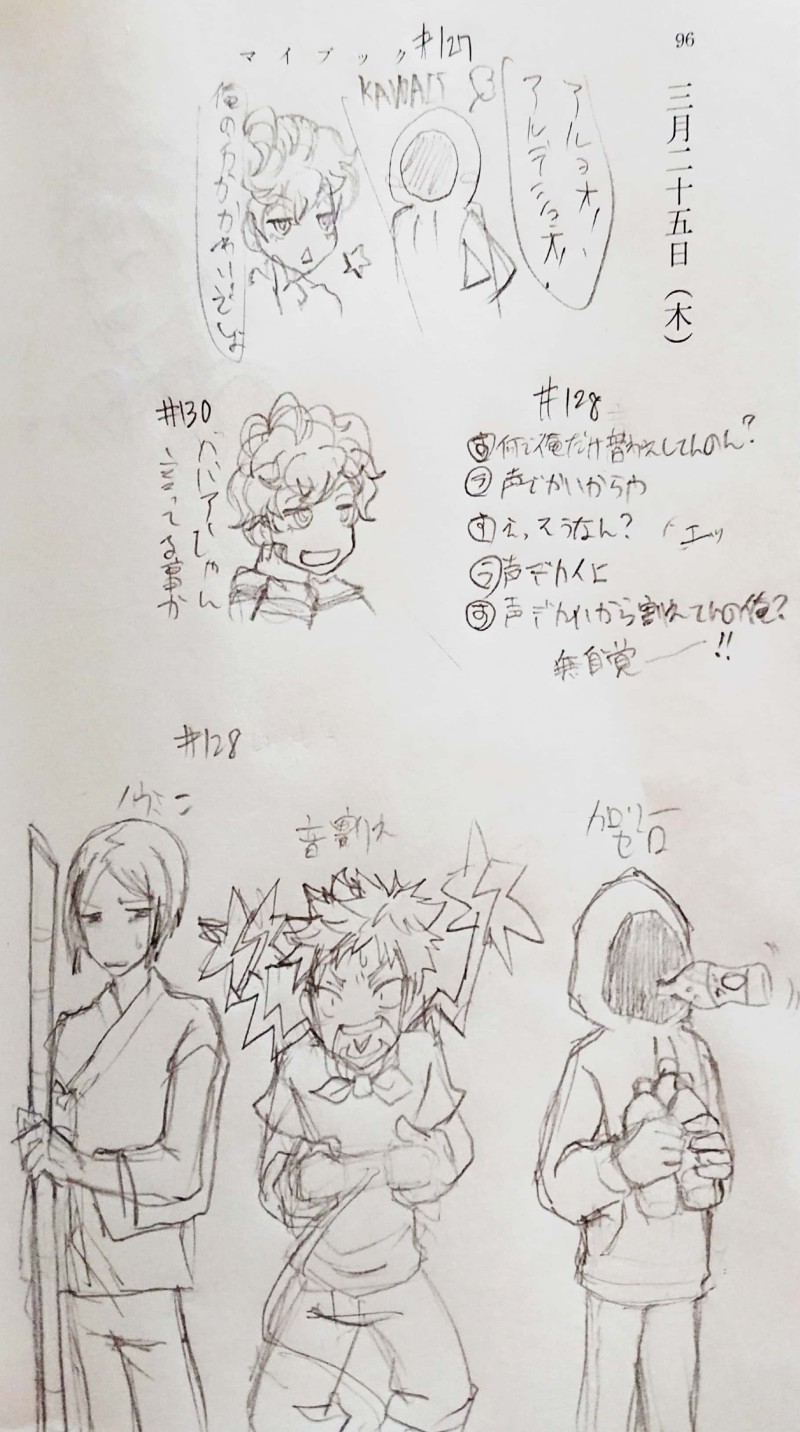 96
三月二十五日（木）
マイブック
#127
アルヨオ！！
アルデンヨオ！
KAWAII
俺の方がかわいいでしょ
#128
す 何で俺だけ替わえしてんのん？
ラ 声でかいからや
す え、そうなん？ エッ
ラ 声デカイヒ
す 声デカいから割れてんの俺？
無自覚 !!
#130
ガバアトじゃん
言ってる事が
#128
音割れ
カロリー
ゼロ